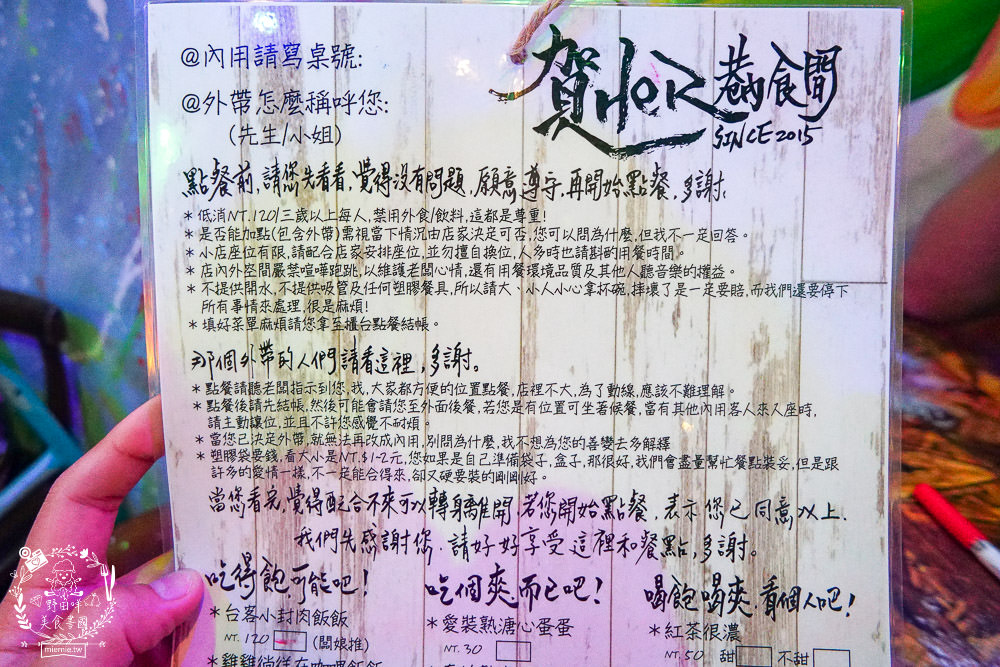 @內用請寫桌號:
賀HOR巷內食間
SINCE 2015
@外帶怎麼稱呼您:
(先生/小姐)
點餐前,請您先看看,覺得沒有問題,願意尊守,再開始點餐,多謝.
*低消NT.120/三歲以上每人,禁用外食/飲料,這都是尊重!
*是否能加點(包含外帶)需視當下情況由店家決定可否,您可以問為什麼,但我不一定回答。
*小店座位有限,請配合店家安排座位,並勿擅自換位,人多時也請斟酌用餐時間。
*店內外空間嚴禁喧嘩跑跳,以維護老闆心情,還有用餐環境品質及其他人聽音樂的權益。
*不提供開水,不提供吸管及任何塑膠餐具,所以請大、小人小心拿杯碗,摔壞了是一定要賠,而我們還要停下
所有事情來處理,很是麻煩!
*填好菜單麻煩請您拿至櫃台點餐結帳。
那個外帶的人們請看這裡,多謝。
*點餐請聽老闆指示到您,我,大家都方便的位置點餐,店裡不大,為了動線,應該不難理解。
*點餐後請先結帳,然後可能會請您至外面後餐,若您是有位置可坐著候餐,當有其他內用客人來入座時,
請主動讓位,並且不許您感覺不耐煩。
*當您已決定外帶,就無法再改成內用,別問為什麼,我不想為您的善變去多解釋
*塑膠袋要錢,看大小是NT.$1-2元,您如果是自己準備袋子,盒子,那很好,我們會盡量幫忙餐點裝妥,但是跟
許多的愛情一樣,不一定能合得來,卻又硬要裝的剛剛好。
當您看完,覺得配合不來可以轉身離開.若您開始點餐,表示您已同意以上.
我們先感謝您.請好好享受這裡和餐點,多謝。
吃得飽可能吧!
吃個爽而已吧!
喝飽喝爽,看個人吧!
*台客小封肉飯飯
*愛裝熟溏心蛋蛋
*紅茶很濃
NT. 120 (闆娘推)
NT. 30
NT. 50 甜 不甜
*雞雞徜徉在咖哩飯飯
野田咩
美食書國
miemie.tw